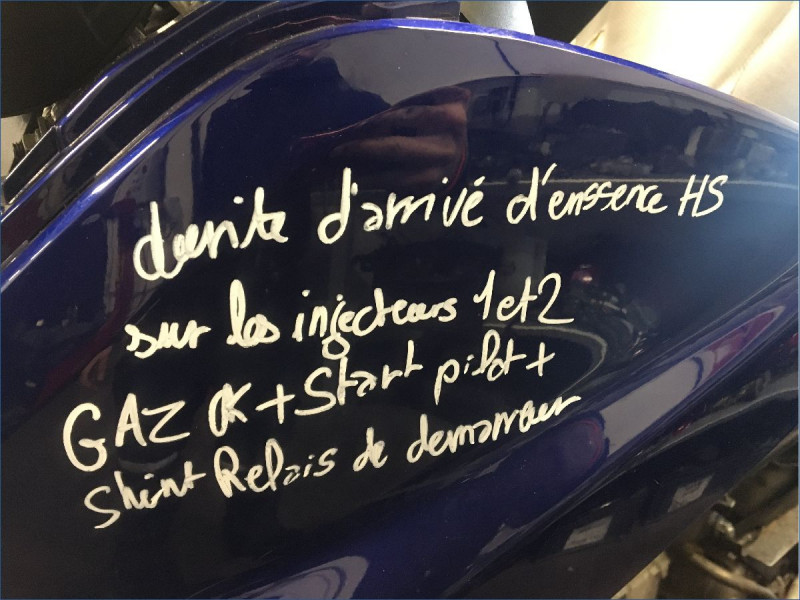 durite d'arrivé d'enssence HS
sur les injecteurs 1 et 2
GAZ OK + Start pilot +
Shint Relais de demarreur